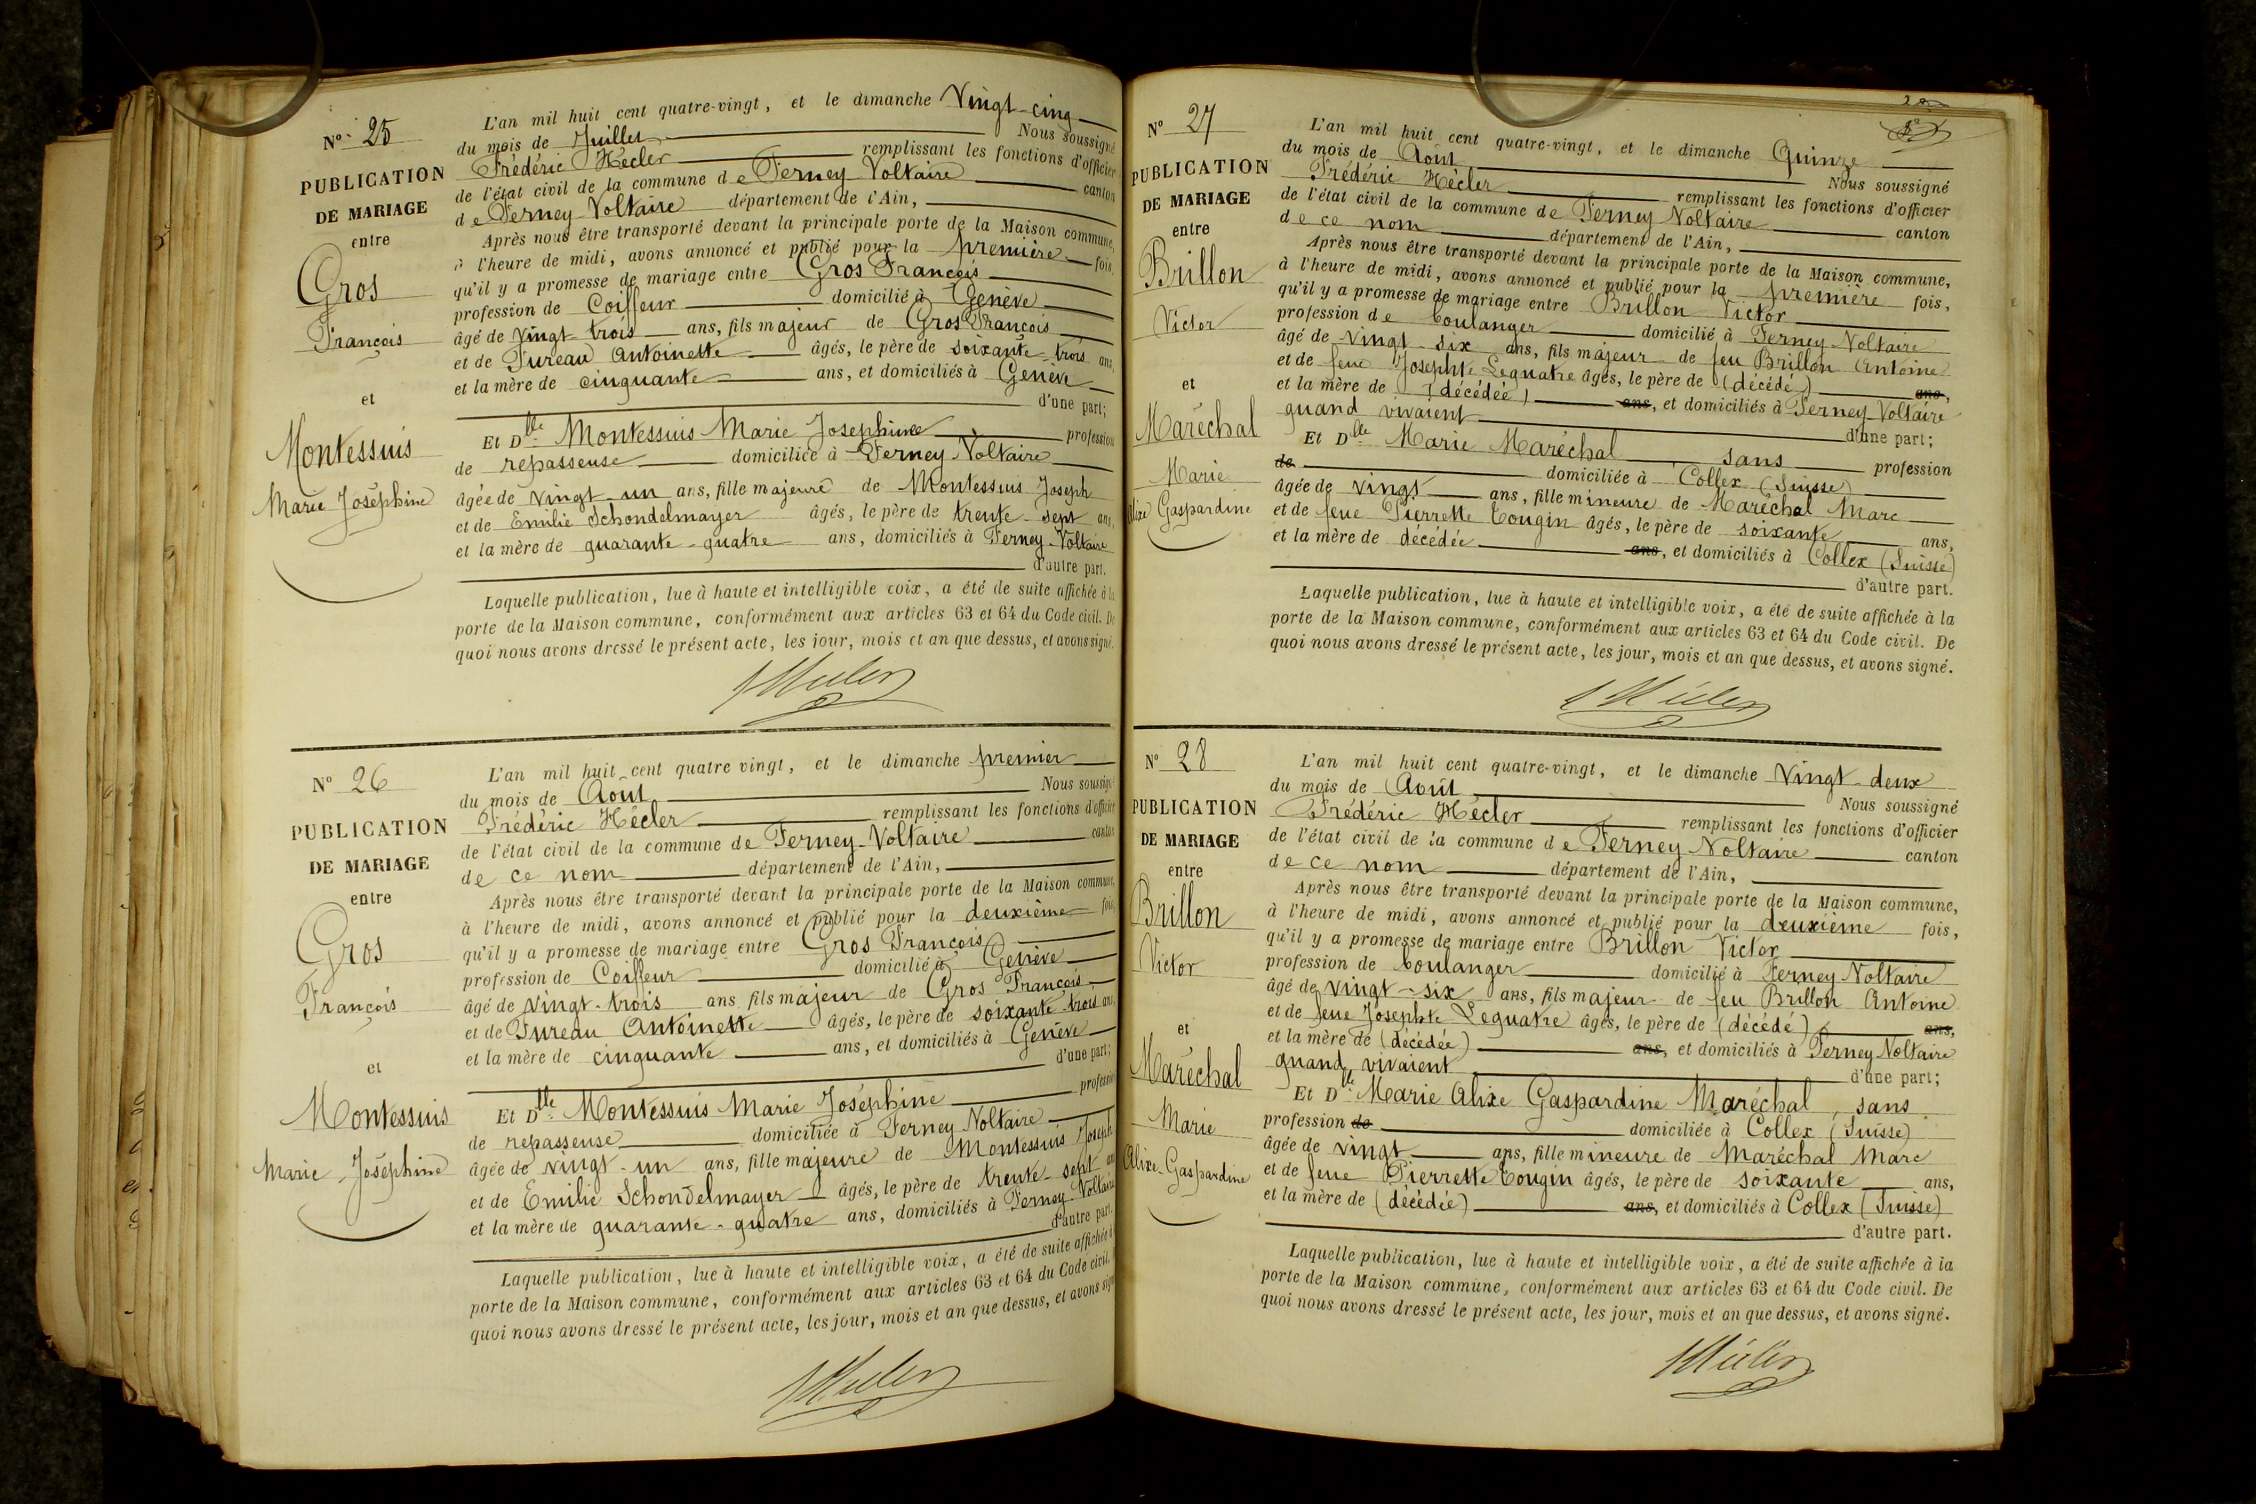 Nº 25
PUBLICATION
DE MARIAGE
entre
Gros
François
et
Montessuis
Marie Joséphine
L'an mil huit cent quatre-vingt, et le dimanche Vingt-cinq
du mois de Juillet Nous soussigné
Frédéric Hécler remplissant les fonctions d'officier
de l'état civil de la commune de Ferney Voltaire canton
de Ferney-Voltaire département de l'Ain,
Après nous être transporté devant la principale porte de la Maison commune,
à l'heure de midi, avons annoncé et publié pour la première fois,
qu'il y a promesse de mariage entre Gros François
profession de Coiffeur domicilié à Genève
âgé de vingt-trois ans, fils majeur de Gros François
et de Fureau Antoinette âgés, le père de soixante-trois ans,
et la mère de cinquante ans, et domiciliés à Genève
d'une part;
Et Dlle Montessuis Marie Joséphine profession
de repasseuse domiciliée à Ferney-Voltaire
âgée de vingt-un ans, fille majeure de Montessuis Joseph
et de Emilie Schondelmayer âgés, le père de trente-sept ans,
et la mère de quarante-quatre ans, domiciliés à Ferney-Voltaire
d'autre part.
Laquelle publication, lue à haute et intelligible voix, a été de suite affichée à la
porte de la Maison commune, conformément aux articles 63 et 64 du Code civil. De
quoi nous avons dressé le présent acte, les jour, mois et an que dessus, et avons signé.
Nº 26
PUBLICATION
DE MARIAGE
entre
Gros
François
et
Montessuis
Marie Joséphine
L'an mil huit cent quatre vingt, et le dimanche premier
du mois de Août Nous soussigné
Frédéric Hécler remplissant les fonctions d'officier
de l'état civil de la commune de Ferney-Voltaire canton
de ce nom département de l'Ain,
Après nous être transporté devant la principale porte de la Maison commune,
à l'heure de midi, avons annoncé et publié pour la deuxième fois,
qu'il y a promesse de mariage entre Gros François
profession de Coiffeur domicilié à Genève
âgé de vingt-trois ans fils majeur de Gros François
et de Fureau Antoinette âgés, le père de soixante-trois ans,
et la mère de cinquante ans, et domiciliés à Genève
d'une part;
Et Dlle Montessuis Marie Joséphine profession
de repasseuse domiciliée à Ferney Voltaire
âgée de vingt-un ans, fille majeure de Montessuis Joseph
et de Emilie Schondelmayer âgés, le père de trente-sept ans
et la mère de quarante-quatre ans, domiciliés à Ferney-Voltaire
d'autre part.
Laquelle publication, lue à haute et intelligible voix, a été de suite affichée à
porte de la Maison commune, conformément aux articles 63 et 64 du Code civil.
quoi nous avons dressé le présent acte, les jour, mois et an que dessus, et avons signé
Nº 27
PUBLICATION
DE MARIAGE
entre
Brillon
Victor
et
Maréchal
Marie
Alixe Gaspardine
L'an mil huit cent quatre-vingt, et le dimanche Quinze
du mois de Août Nous soussigné
Frédéric Hécler remplissant les fonctions d'officier
de l'état civil de la commune de Ferney Voltaire canton
de ce nom département de l'Ain,
Après nous être transporté devant la principale porte de la Maison commune,
à l'heure de midi, avons annoncé et publié pour la première fois,
qu'il y a promesse de mariage entre Brillon Victor
profession de boulanger domicilié à Ferney-Voltaire
âgé de vingt-six ans, fils majeur de feu Brillon Antoine
et de feue Josephte Lequatre âgés, le père de (décédé) ans,
et la mère de (décédée) ans, et domiciliés à Ferney Voltaire
quand vivaient d'une part;
Et Dlle Marie Maréchal sans profession
de domiciliée à Collex (Suisse)
âgée de vingt ans, fille mineure de Maréchal Marc
et de feue Pierrette Tougin âgés, le père de soixante ans,
et la mère de décédée ans, et domiciliés à Collex (Suisse)
d'autre part.
Laquelle publication, lue à haute et intelligible voix, a été de suite affichée à la
porte de la Maison commune, conformément aux articles 63 et 64 du Code civil. De
quoi nous avons dressé le présent acte, les jour, mois et an que dessus, et avons signé.
Nº 28
PUBLICATION
DE MARIAGE
entre
Brillon
Victor
et
Maréchal
Marie
Alixe-Gaspardine
L'an mil huit cent quatre-vingt, et le dimanche Vingt-deux
du mois de Août Nous soussigné
Frédéric Hécler remplissant les fonctions d'officier
de l'état civil de la commune de Ferney-Voltaire canton
de ce nom département de l'Ain,
Après nous être transporté devant la principale porte de la Maison commune,
à l'heure de midi, avons annoncé et publié pour la deuxième fois,
qu'il y a promesse de mariage entre Brillon Victor
profession de boulanger domicilié à Ferney Voltaire
âgé de vingt-six ans, fils majeur de feu Brillon Antoine
et de feue Josephte Lequatre âgés, le père de (décédé) ans,
et la mère de (décédée) ans, et domiciliés à Ferney Voltaire
quand vivaient d'une part;
Et Dlle Marie Alixe Gaspardine Maréchal, sans
profession de domiciliée à Collex (Suisse)
âgée de vingt ans, fille mineure de Maréchal Marc
et de feue Pierrette Tougin âgés, le père de soixante ans,
et la mère de (décédée) ans, et domiciliés à Collex (Suisse)
d'autre part.
Laquelle publication, lue à haute et intelligible voix, a été de suite affichée à la
porte de la Maison commune, conformément aux articles 63 et 64 du Code civil. De
quoi nous avons dressé le présent acte, les jour, mois et an que dessus, et avons signé.